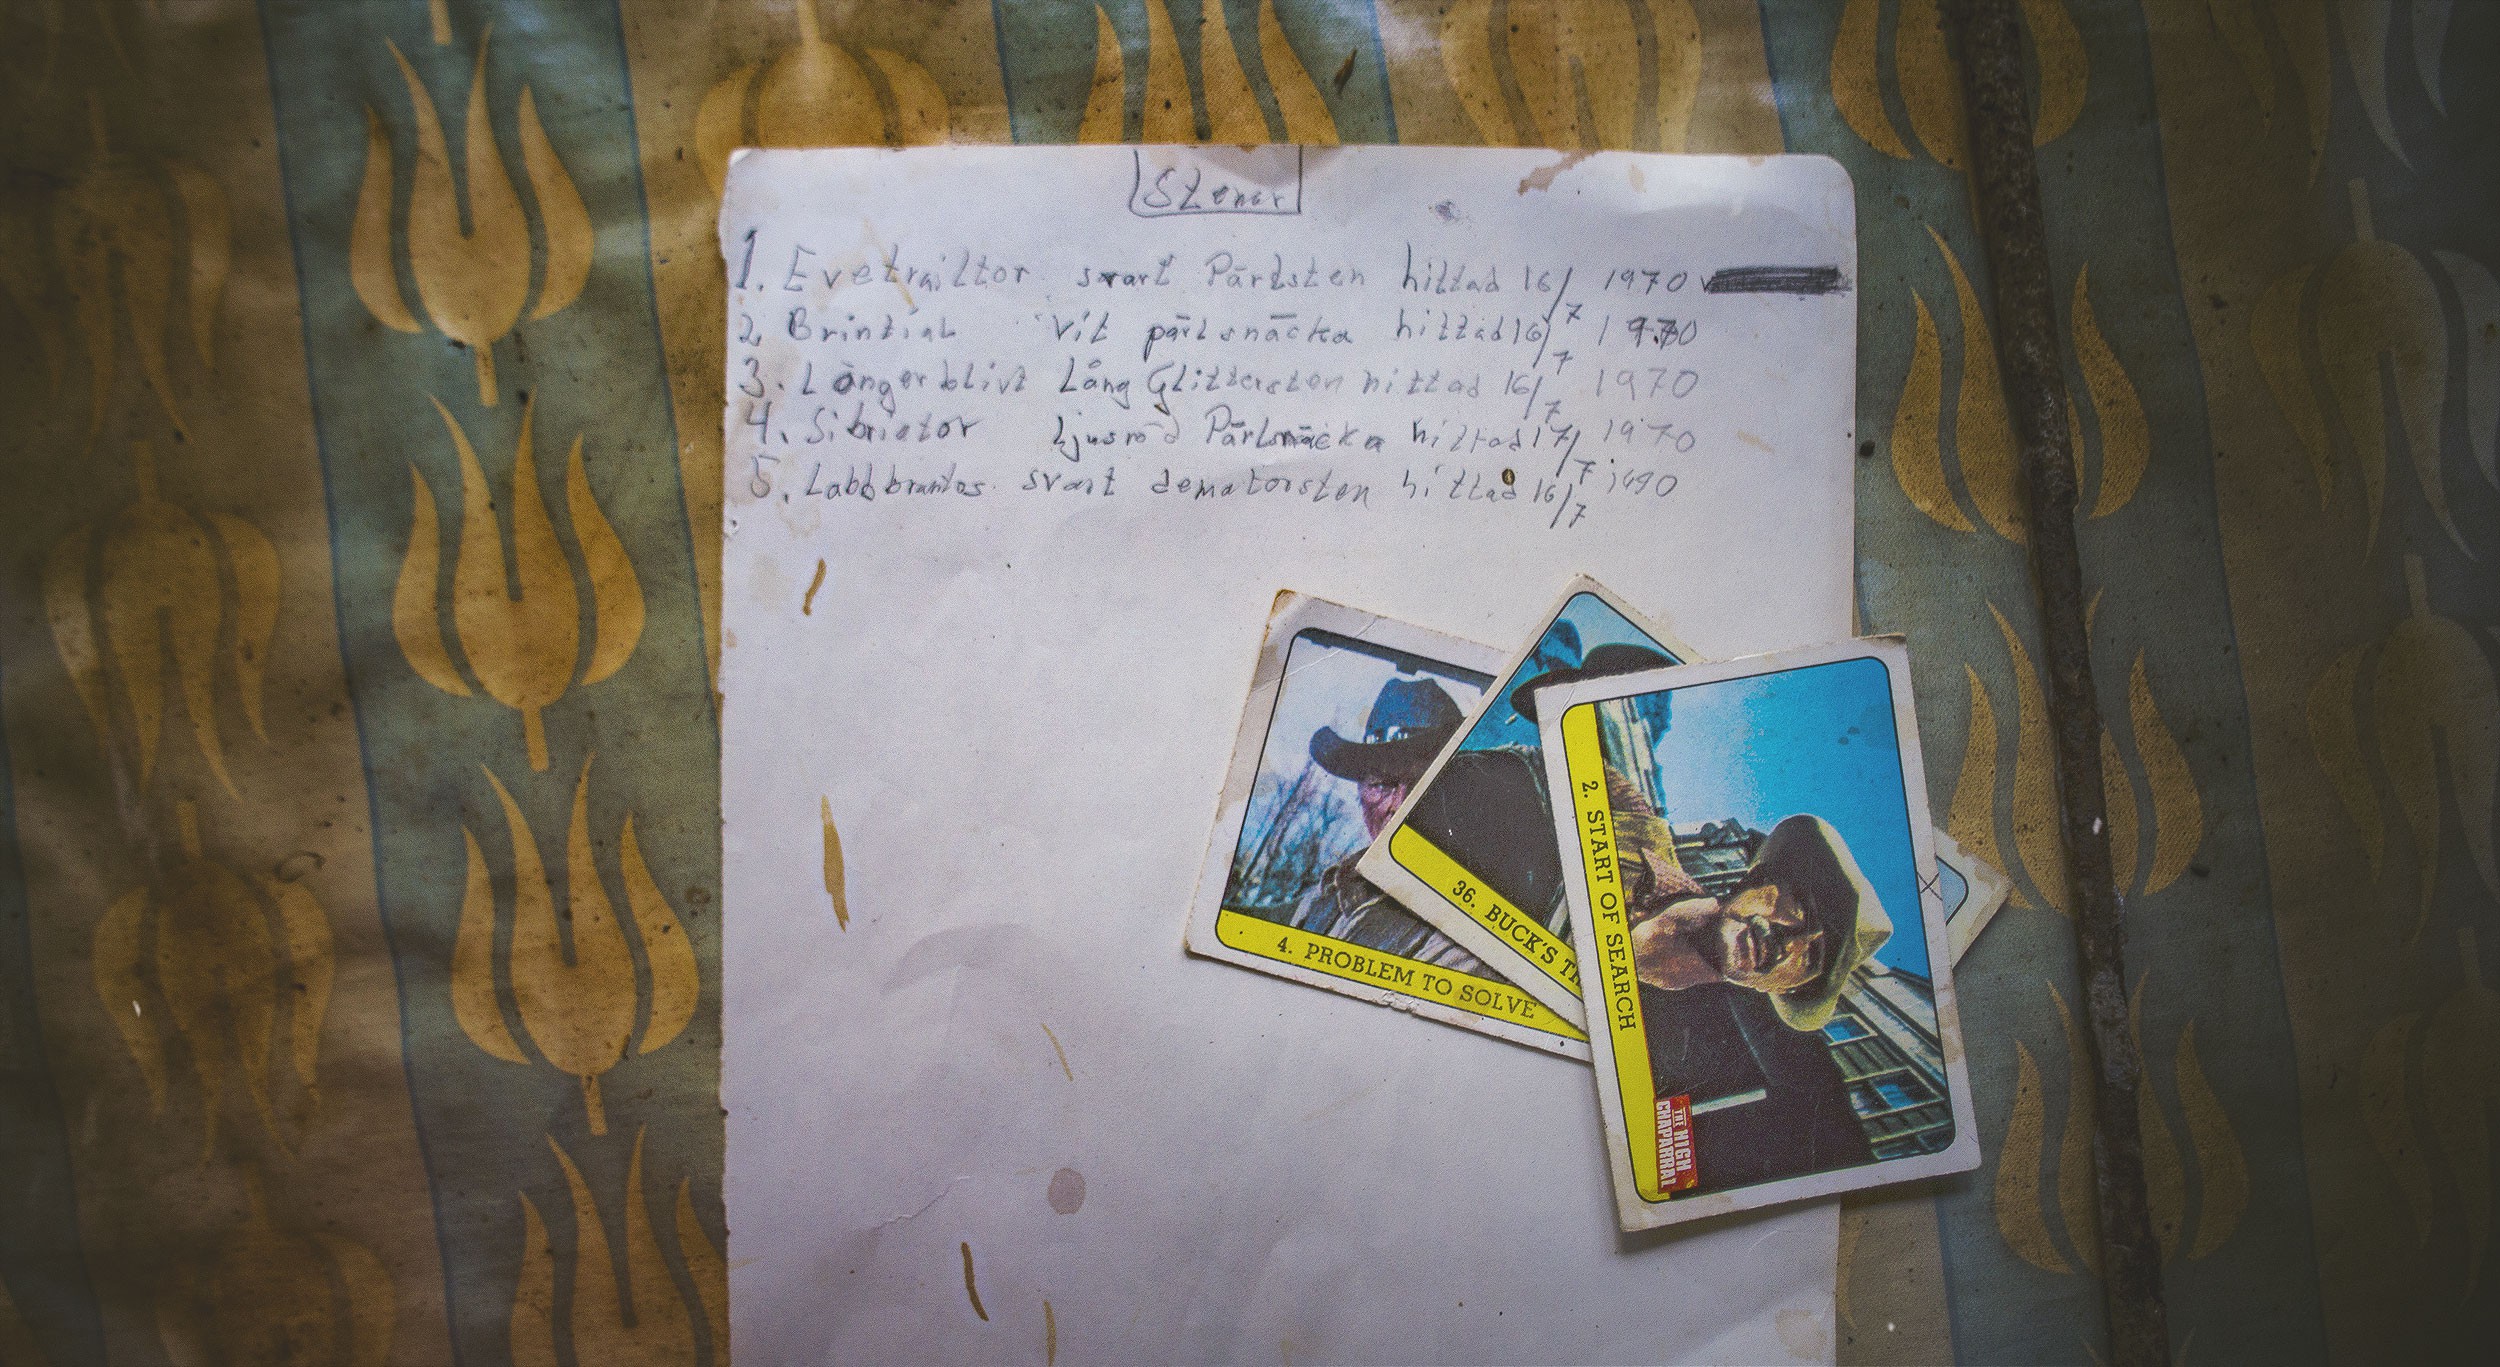 Stenar
1. Evetrailtor svart Pärlsten hittad 16/7 1970
2. Brintial vit pärlsnäcka hittad 16/7 1970
3. Långerblivt Lång Glittersten hittad 16/7 1970
4. Sibriator Ljusröd Pärlsnäcka hittad 17/7 1970
5. svart dematorsten hittad 16/7
4. PROBLEM TO SOLVE
36. BUCK'S
2. START OF SEARCH
THE HIGH
CHAPARRAL